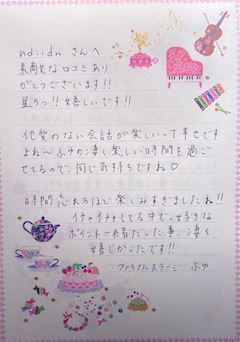 ndiidn さんへ
素敵な口コミあり
がとうございます!!
星5つ!! 嬉しいです!!
他愛のない会話が楽しいって幸せです
よね〜ふゆも凄く楽しい時間を過ご
せてるので、同じ気持ちですね♡
時間忘れるほど楽しみすぎましたね!!
イチャイチャしてる中で、好きな
ポイント一緒だった事も凄く
嬉しかったです!!
ファイナルステージ ふゆ